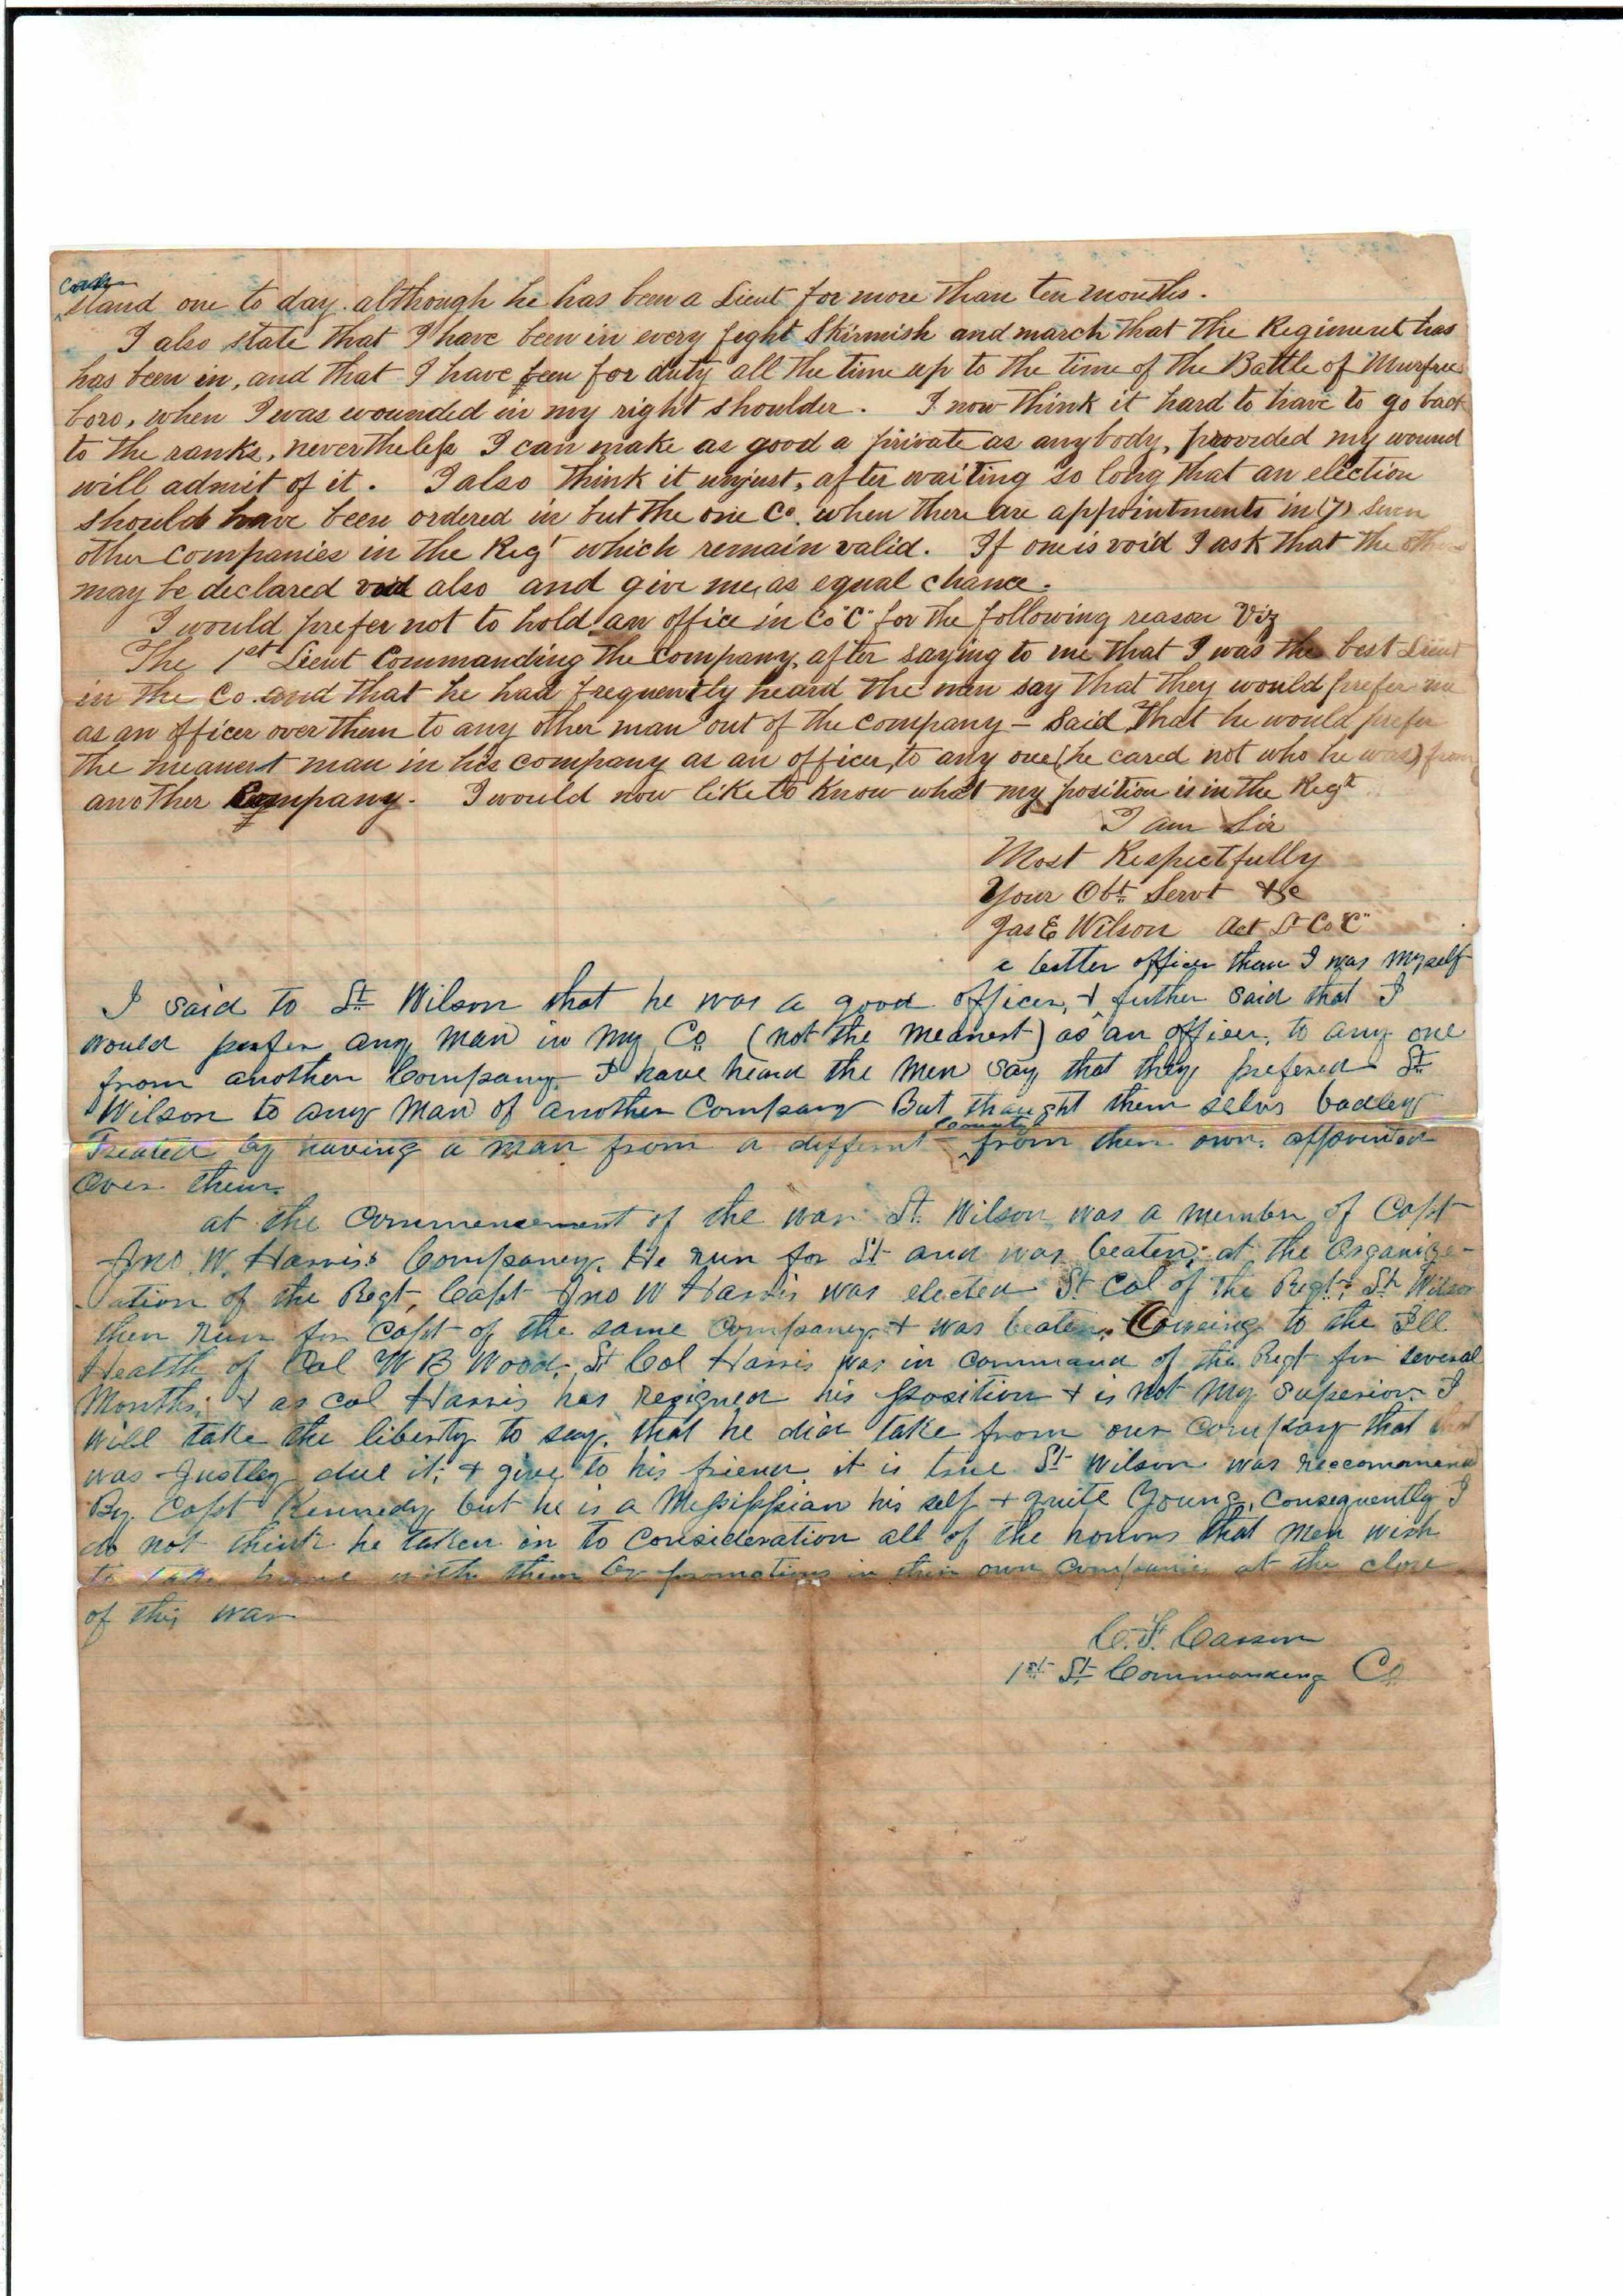 stand one to day. although he has been a Lieut for more than ten months.
I also state that I have been in every fight Skirmish and march that the Regiment has
has been in, and that I have been for duty all the time up to the time of the Battle of Murfrees
boro, when I was wounded in my right shoulder. I now think it hard to have to go back
to the ranks, nevertheless I can make as good a private as anybody, provided my wound
will admit of it. I also think it unjust, after waiting so long that an election
should have been ordered in but the one Co. when there are appointments in (7) seven
other companies in the Regt which remain valid. If one is void I ask that the others
may be declared void also and give me, as equal chance.
I would prefer not to hold an office in Co "C" for the following reason Viz
The 1st Lieut Commanding the Company, after saying to me that I was the best Lieut
in the Co. and that he had frequently heard the men say that they would prefer me
as an officer over them to any other man out of the company – said that he would prefer
the meanest man in his company as an officer, to any one (he cared not who he was) from
another Company. I would now like to know what my position is in the Regt.
I am Sir
Most Respectfully
Your Obt Servt &c
Jas E Wilson Act Lt Co "C"
a better officer than I was myself
I said to Lt Wilson that he was a good officer, + futher said that I
would prefer any man in my Co (not the meanest) as an officer, to any one
from another Company. I have heard the men say that they prefered Lt
Wilson to any man of another Company But thought them selvs badley
Treated by having a man from a differnt County from their own. appointed
over them.
at the Commencement of the war Lt. Wilson was a member of Capt
Jno. W. Harris's Companey. He run for Lt and was beaten; at the Organize-
ation of the Regt, Capt Jno W Harris was elected Lt Col of the Regt; Lt Wilson
then run for Capt of the same Companey + was beaten. Oweing to the Ill
Health of Col W B Wood, Lt Col Harris was in command of the Regt for several
Months; + as Col Harris has resigned his position + is not my superior I
will take the liberty to say. that he did take from our Company that
was Justley due it; + give to his friend it is true Lt Wilson was reccommend
By Capt Kennedy but he is a Missippian his self + quite Young, Consequently I
do not think he taken in to consideration all of the honors that men wish
to take home with them by promotions in their own Companies at the close
of this war
C. F. Carson
1st Lt Commanding Co